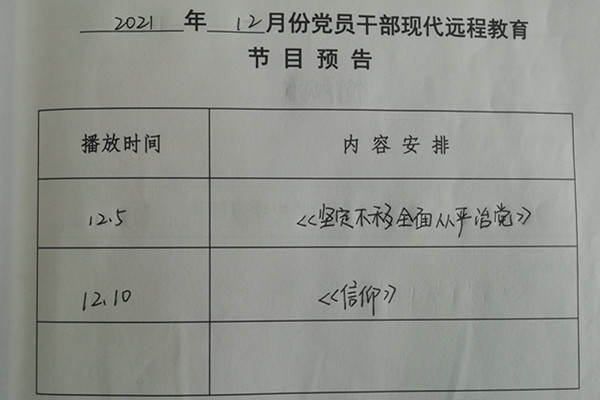 2021 年 12 月份党员干部现代远程教育
节目预告
播放时间 内容安排
12.5 《坚定不移全面从严治党》
12.10 《信仰》